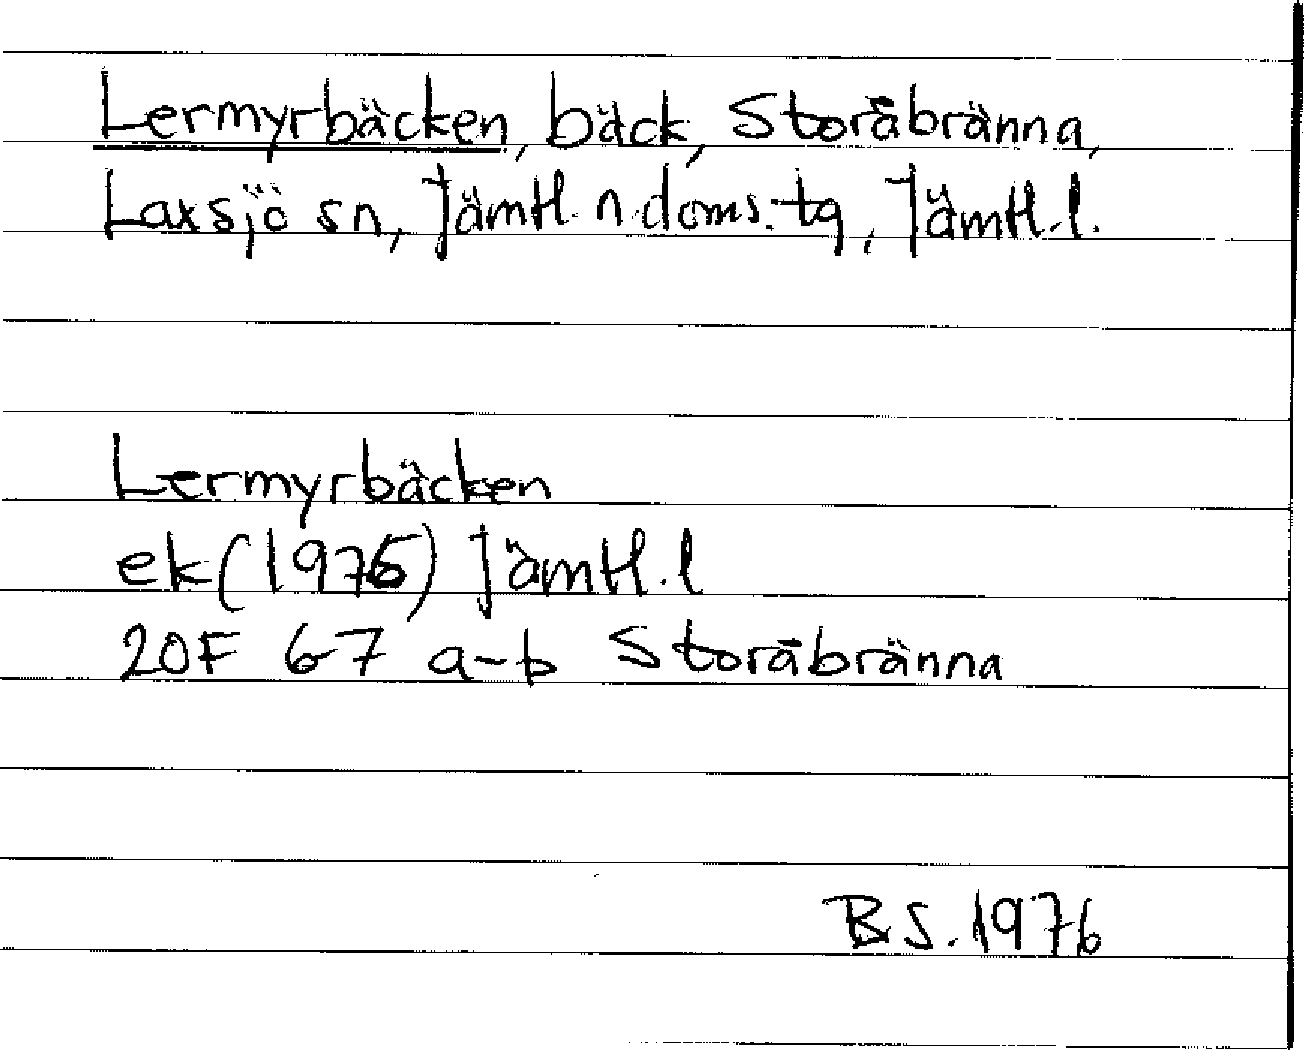 Lermyrbäcken, bäck, Storåbränna,
Laxsjö sn, Jämtl. n. doms. tg, Jämtl. l.
Lermyrbäcken
ek (1975) Jämtl. l
20F 6-7 a-b Storåbränna
B S. 1976